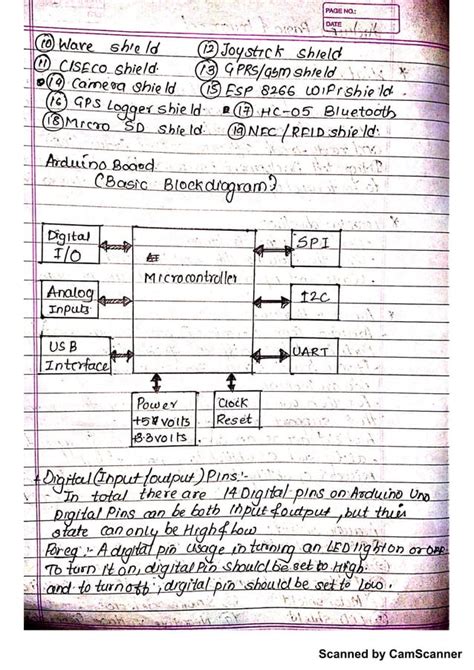 PAGE NO.:
DATE
⑩ Wave shield ⑫ Joystick shield
⑪ CISECO shield ⑬ GPRS/gsm shield
⑭ Camera shield ⑮ ESP 8266 WIFI shield
⑯ GPS Logger shield ⑰ HC-05 Bluetooth
⑱ Micro SD shield ⑲ NFC / RFID shield.
Arduino Board
(Basic Block diagram)
Digital
I/O
Analog
Inputs
USB
Interface
Microcontroller
SPI
I2C
UART
Power
+5V volts
+3.3 volts
Clock
Reset
Digital (Input/output) Pins :-
In total there are 14 Digital pins on Arduino Uno
Digital Pins can be both input & output, but their
state can only be High & low
For eg :- A digital pin usage in turning an LED light on or OFF.
To turn it on, digital Pin should be set to High.
and to turn off, digital pin should be set to low.
Scanned by CamScanner